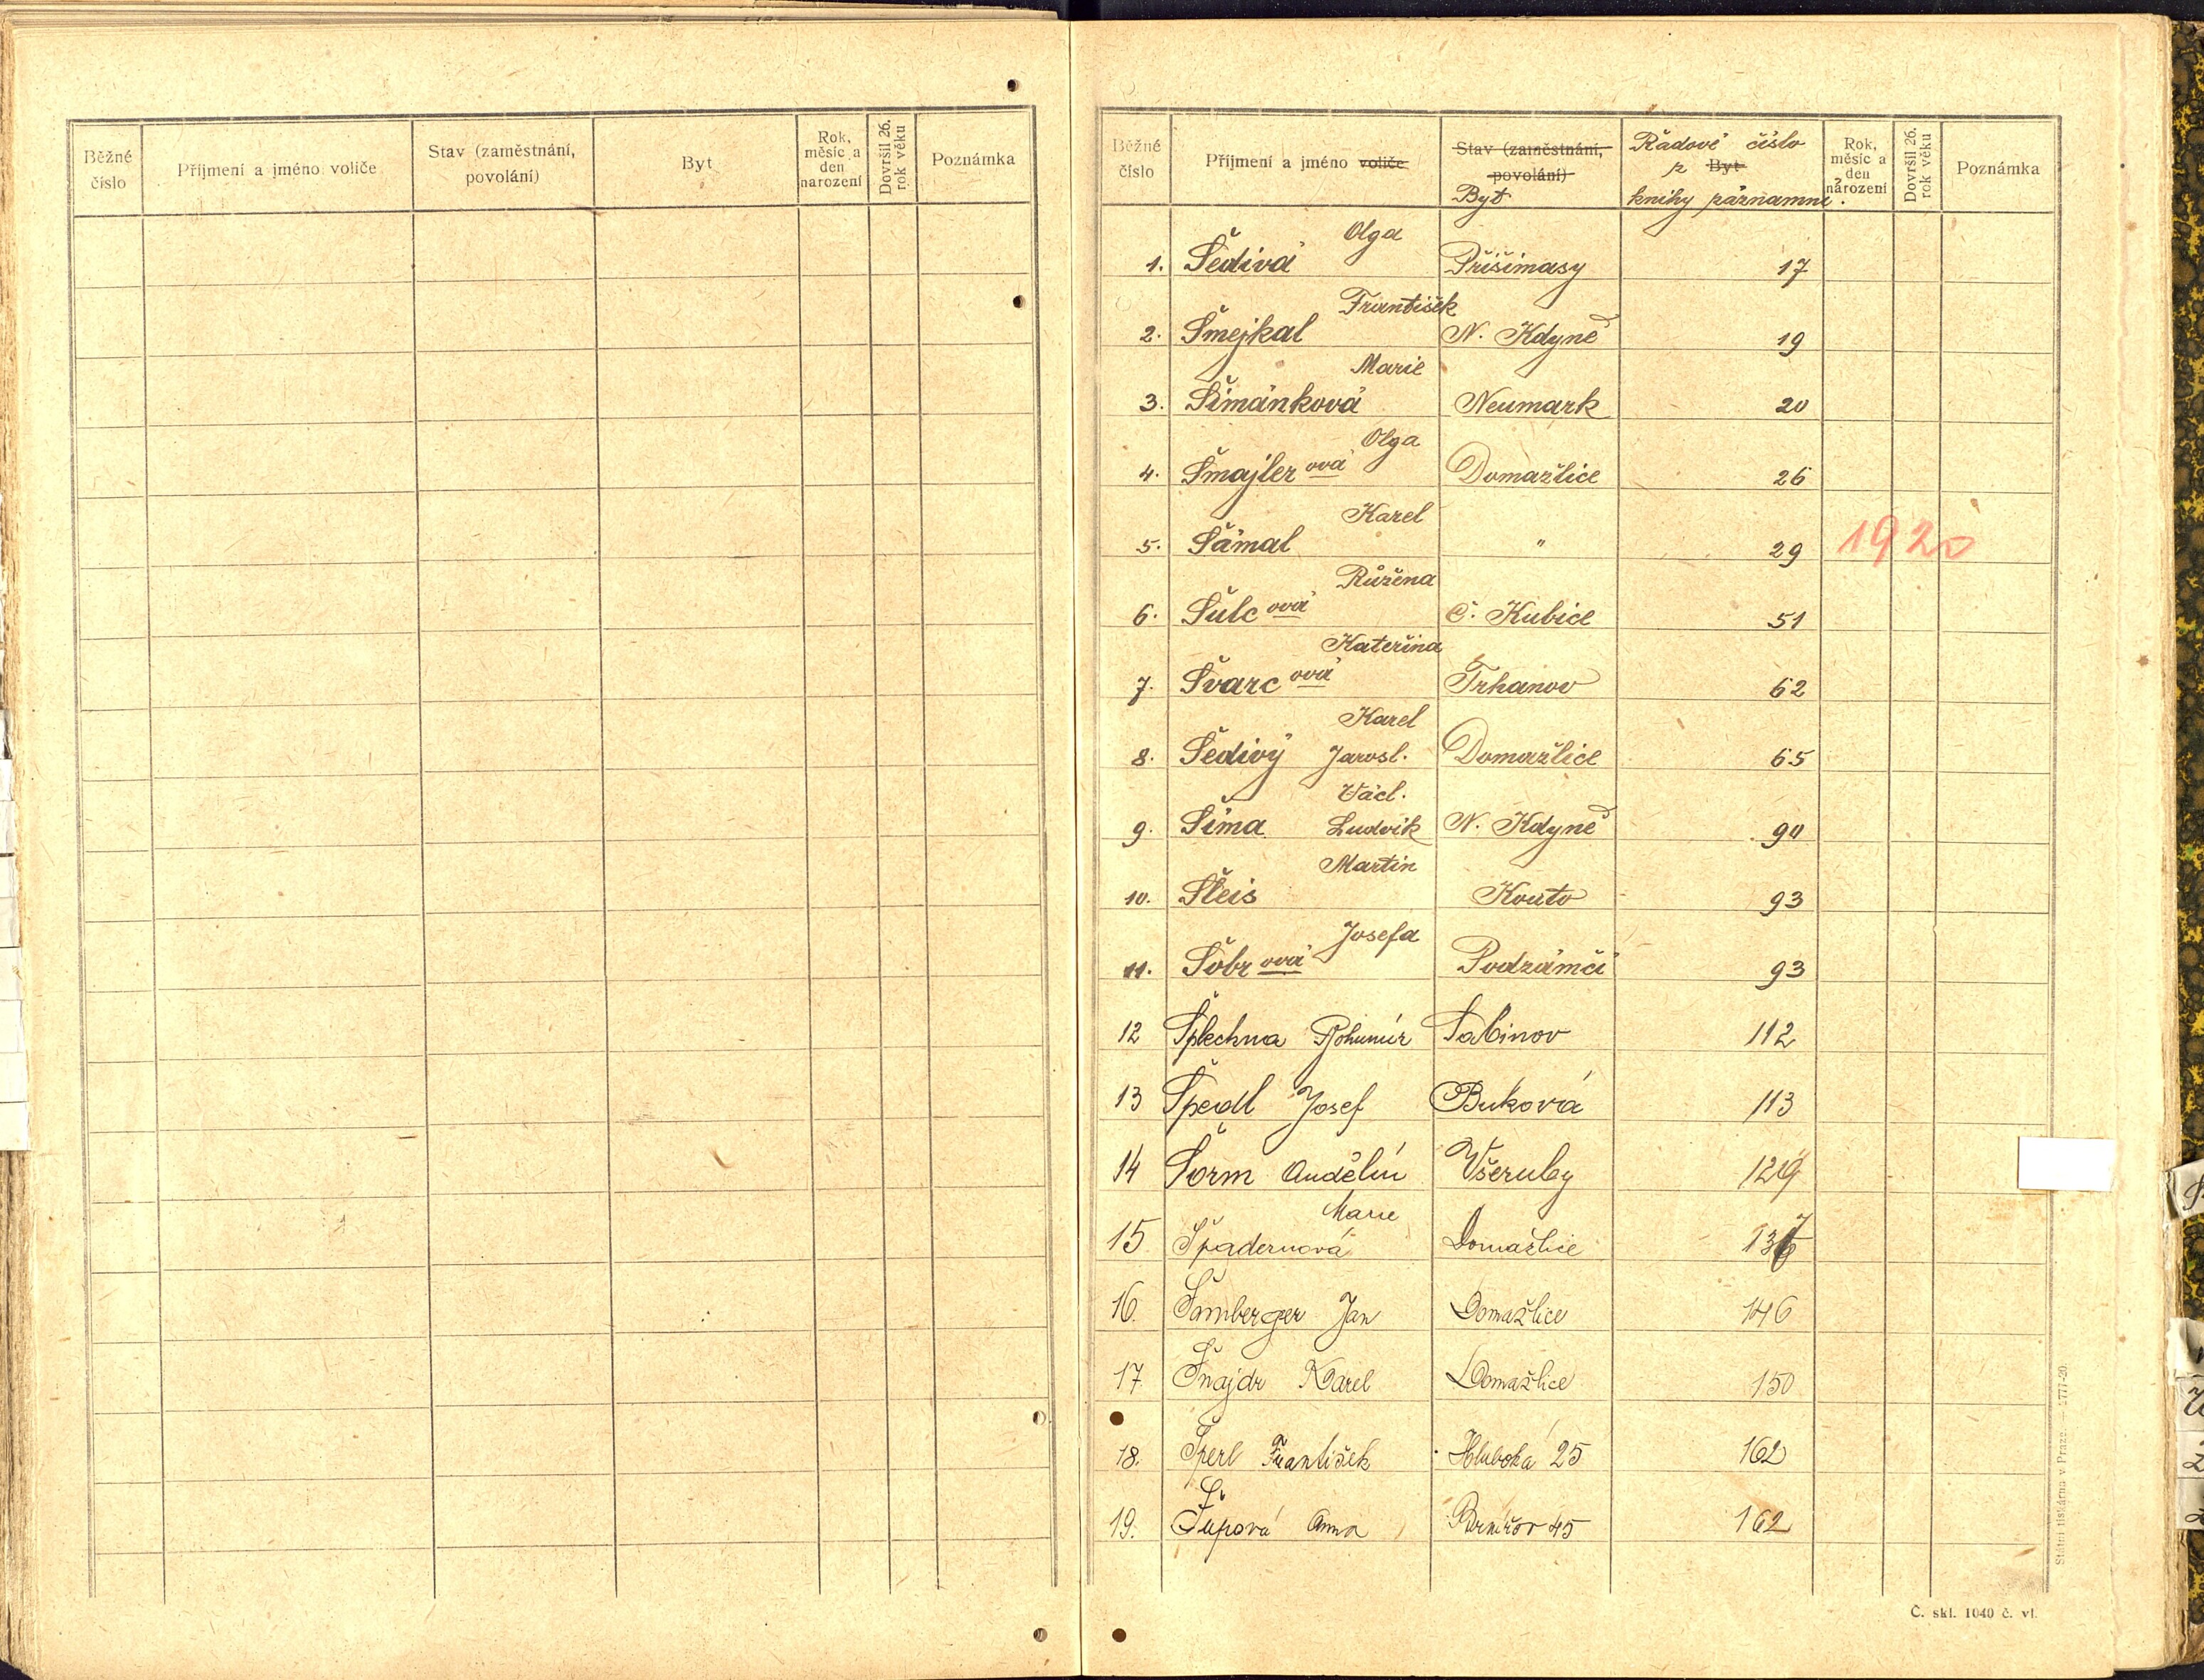 Běžné číslo Příjmení a jméno voliče Stav (zaměstnání, povolání) Byt Rok, měsíc a den narození Dovršil 26. rok věku Poznámka
Běžné číslo Příjmení a jméno voliče Stav (zaměstnání, povolání) Byt Řadové číslo z Byt knihy záznamní. Rok, měsíc a den narození Dovršil 26. rok věku Poznámka
1. Šedivá Olga Přišimasy 17
2. Šmejkal František N. Kdyně 19
3. Šimánková Marie Neumark 20
4. Šmajlerová Olga Domažlice 26
5. Šámal Karel " 29 1920
6. Šulcová Růžena Č. Kubice 51
7. Švarcová Kateřina Trhanov 62
8. Šedivý Karel Jarosl. Domažlice 65
9. Šíma Václ. Ludvík N. Kdyně 90
10. Šleis Martin Kouto 93
11. Šobrová Josefa Podzámčí 93
12 Šplechna Bohumír Sabinov 112
13 Špeidl Josef Buková 113
14 Šorm Andělín Všeruby 129
15 Špadernová Marie Domažlice 137
16. Šamberger Jan Domažlice 146
17. Šnajdr Karel Domažlice 150
18. Šperl František Hluboká 25 162
19. Šupová Anna 45 162
Státní tiskárna v Praze. — 5777-20.
Č. skl. 1040 č. vl.